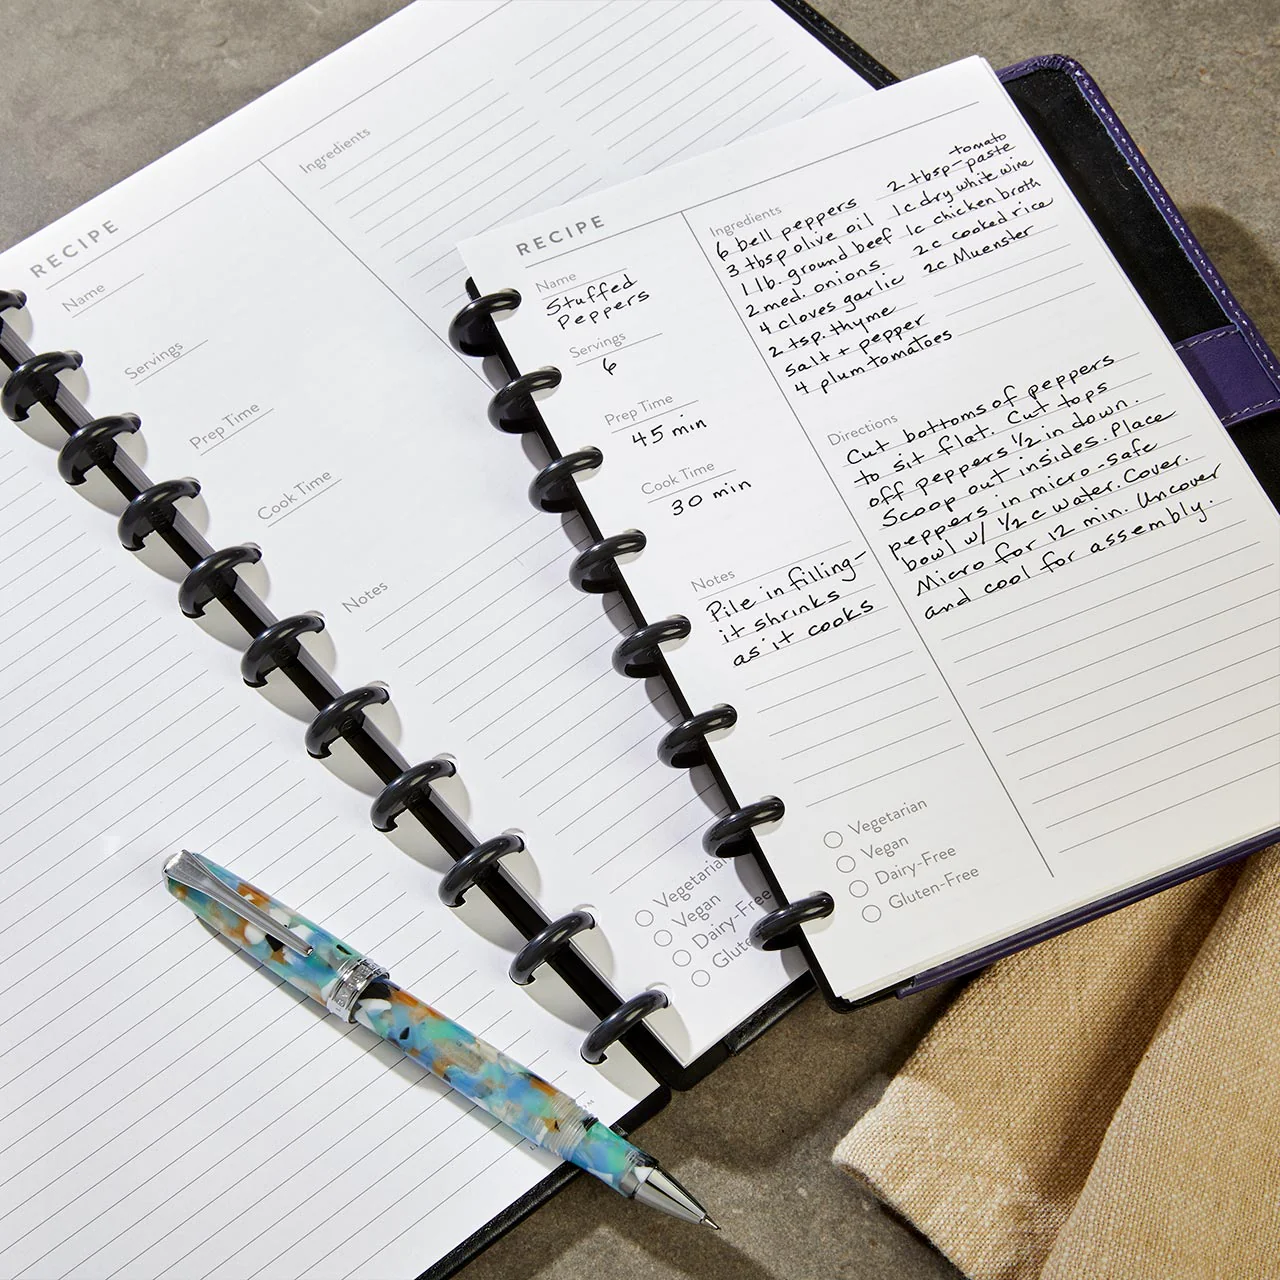 RECIPE
Name
Servings
Prep Time
Cook Time
Notes
Ingredients
Vegetarian
Vegan
Dairy-Free
RECIPE
Name
Stuffed
Peppers
Servings
6
Prep Time
45 min
Cook Time
30 min
Notes
Pile in filling-
it shrinks
as it cooks
Vegetarian
Vegan
Dairy-Free
Gluten-Free
Ingredients
6 bell peppers
3 tbsp olive oil
1 lb. ground beef
2 med. onions
4 cloves garlic
2 tsp. thyme
salt + pepper
4 plum tomatoes
tomato
2 tbsp-paste
1c dry white wine
1c chicken broth
2c cooked rice
2c Muenster
Directions
Cut bottoms of peppers
to sit flat. Cut tops
off peppers 1/2 in down.
Scoop out insides. Place
peppers in micro-safe
bowl w/ 1/2 c water. Cover.
Micro for 12 min. Uncover
and cool for assembly.